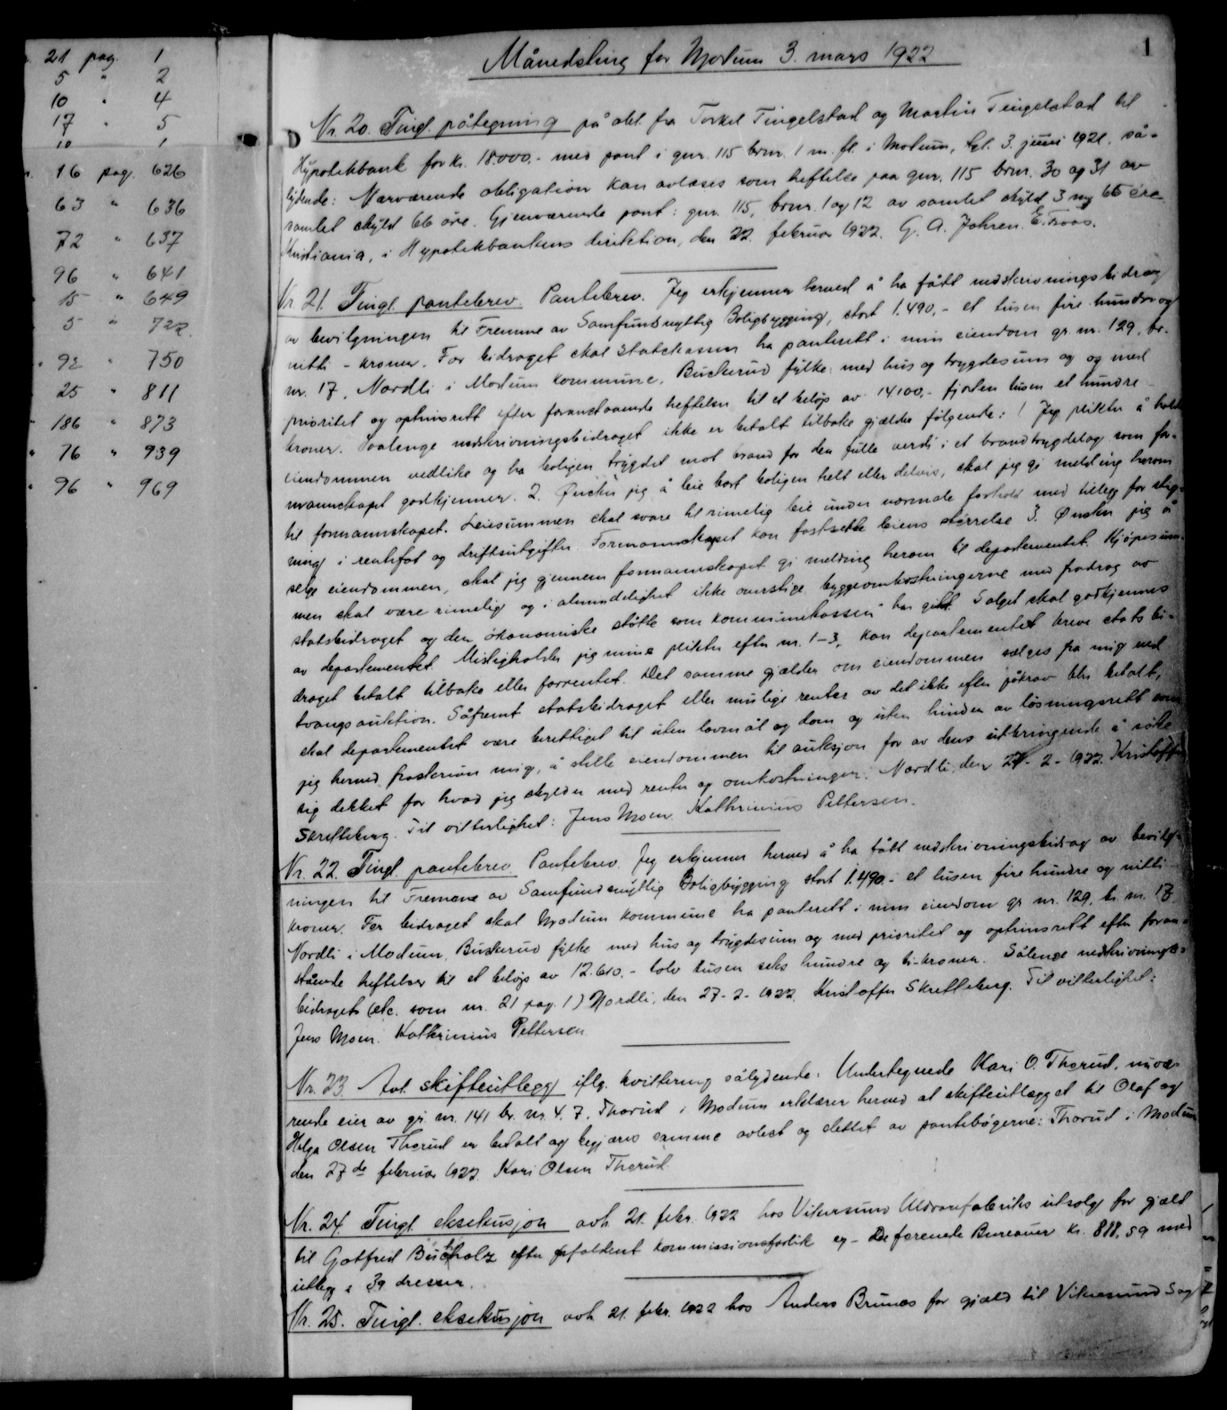 21 pag. 1
5 " 2
10 " 4
17 " 5
10 1
16 pag. 626
63 " 636
72 " 637
96 " 641
15 " 649
5 " 722
92 " 750
25 " 811
186 " 873
76 " 939
96 " 969
1
Månedsting for Modum 3. mars 1922
Nr. 20. Tingl. påtegning på obl. fra Torkel Tingelstad og Martin Tingelstad til
Hypotekbank for kr. 18.000.- med pant i gnr. 115 brnr. 1 m. fl. i Modum, tgl. 3. juni 1921. så-
lydende: Nærværende obligation kan avlæses som heftelse paa gnr. 115 brnr. 30 og 31 av
samlet skyld 66 öre. Gjenværende pant: gnr. 115, brnr. 1 og 12 av samlet skyld 3 mg 66 öre
Kristiania, i Hypotekbankens direktion, den 22. februar 1922. G. A. Jahren. E.
Nr. 21. Tingl. pantebrev. Pantebrev. Jeg erkjenner herved å ha fått nedskrivningsbidrag
av bevilgningen til Fremme av Samfundsnyttig Boligbygging, stort 1.490,- et tusen fire hundre og
nitti - kroner. For bidraget skal Statskassen ha panterett i min eiendom gr. nr. 129, br.
nr. 17, Nordli i Modum kommune, Buskerud fylke med hus og trygdesum og og med
prioritet og optrinsrett efter foranstaaende heftelser til et beløp av 14100,- fjorten tusen et hundre
kroner. Saalenge nedskrivningsbidraget ikke er betalt tilbake gjælder følgende: 1 Jeg plikter å holde
eiendommen vedlike og ha boligen trygdet mot brand for den fulle verdi i et brandtrygdelag som for-
mannskapet godkjenner. 2. Ønsker jeg å leie bort boligen helt eller delvis, skal jeg gi melding herom
til formannskapet. Leiesummen skal svare til rimelig leie under normale forhold med tillegg for stig-
ning i rentefot og driftsutgifter. Formannskapet kan fastsette leiens størrelse 3. Ønsker jeg å
selge eiendommen, skal jeg gjennem formannskapet gi melding herom til departementet. Kjøpesum-
men skal være rimelig og i almindelighet ikke overstige byggeomkostningerne med fradrag av
statsbidraget og den økonomiske støtte som kommunekassen har gitt. Salget skal godkjennes
av departementet. Misligholder jeg mine plikter efter nr. 1-3, kan departementet kreve statsbi-
draget betalt tilbake eller forrentet. Det samme gjælder om eiendommen sælges fra mig ved
tvangsauktion. Såfremt statsbidraget eller mulige renter av det ikke efter påkrav blir betalt,
skal departementet være berettiget til uten lovmål og dom og uten hinder av løsningsrett som
jeg herved fraskriver mig, å stille eiendommen til auksjon for av dens utbringende å söke
sig dekket for hvad jeg skylder med renter og omkostninger. Nordli, den 27-2-1922. Kristoffer
Skretteberg. Til vitterlighet: Jens Moen. Kathrinius Pettersen.
Nr. 22. Tingl. pantebrev. Pantebrev. Jeg erkjenner herved å ha fått nedskrivningsbidrag av bevilg-
ningen til Fremme av Samfundsnyttig Boligbygging stort 1.490.- et tusen fire hundre og nitti
kroner. For bidraget skal Modum kommune ha panterett i min eiendom gr. nr. 129, br. nr. 17
Nordli i Modum, Buskerud fylke med hus og trygdesum og med prioritet og optrinsrett efter foran-
stående heftelser til et beløp av 12.610.- tolv tusen seks hundre og ti-kroner. Sålenge nedskrivnings-
bidraget (etc. som nr. 21 pag. 1) Nordli, den 27-2-1922. Kristoffer Skretteberg. Til vitterlighet:
Jens Moen. Kathrinius Pettersen.
Nr. 23 Avl. skifteutlegg iflg. kvittering sålydende: Undertegnede Kari O. Thorud, nuvæ-
rende eier av gr. nr. 141 br. nr. 4. 7. Thorud i Modum erklærer herved at skifteutlægget til Olaf og
Helga Olsen Thorud er betalt og begjæres samme avlest og slettet av pantebøgerne. Thorud i Modum
den 27de februar 1922. Kari Olsen Thorud.
Nr. 24. Tingl. eksekusjon avh. 21. febr. 1922 hos Vikersund Uldvarefabriks utsalg for gjæld
til Gotfred Buchholz efter forfaldent kommissionsforlik og - De forenede Bureauer kr. 818,59 med
utlegg i 39 dresser.
Nr. 25. Tingl. eksekusjon avh. 21. febr. 1922 hos Anders Brunes for gjæld til Vikersund Sag